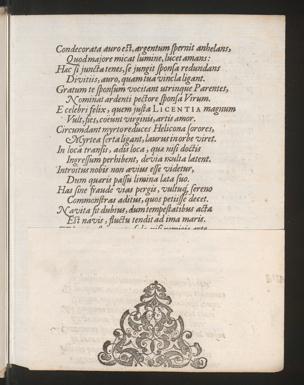 Condecorata auro est, argentum spernit anhelans,
Quod majore micat lumine, lucet amans:
Hac si juncta tenes, se jungit sponsa redundans
Divitiis, auro, quam tua vincla ligant.
Gratum te sponsum vocitant utrinque Parentes,
Nominat ardenti pectore sponsa Virum.
E celebri felix, quem justa LICENTIA magnum
Vult, fies, coëunt virginis, artis amor.
Circumdant myrto reduces Helicona sorores,
Myrtea serta ligant, laurus in orbe viret.
In loca transis, adis loca, qua nisi doctis
Ingressum perhibent, devia multa latent.
Introitus nobis non avius esse videtur,
Dum quaris passu limina lata suo.
Has sine fraude vias pergis, vultuq; sereno
Commonstras aditus, quos petiisse decet.
Navita fit dubius, dum tempestatibus acta
Est navis, fluctu tendit ad ima maris.